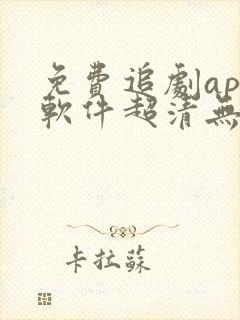 免費追劇ap
軟件超清無
卡拉蘇